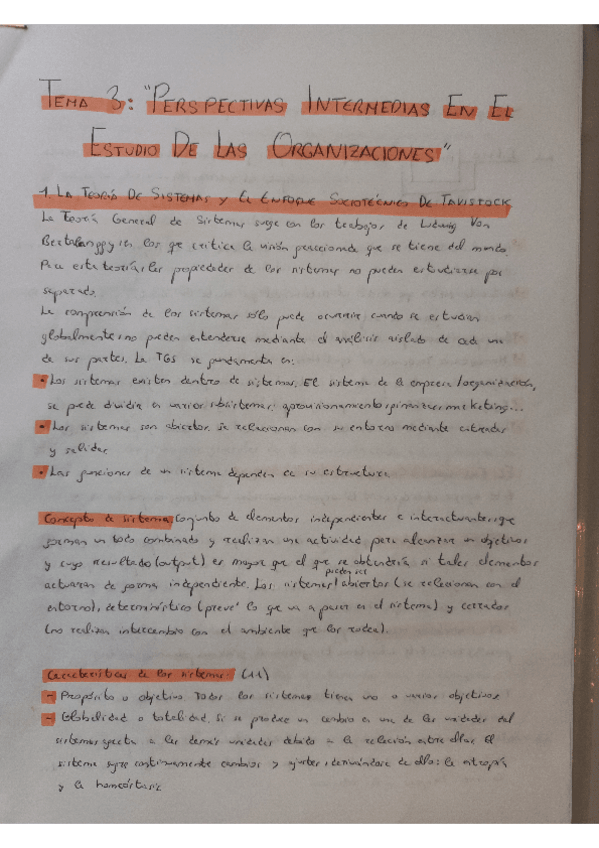 TEMA 3: "PERSPECTIVAS INTERMEDIAS EN EL
ESTUDIO DE LAS ORGANIZACIONES"
1. LA TEORÍA DE SISTEMAS Y EL ENFOQUE SOCIOTÉCNICO DE TAVISTOCK
La Teoría General de Sistemas surge con los trabajos de Ludwig Von
Bertalanffy, en los que critica la visión fraccionada que se tiene del mundo.
Para esta teoría, las propiedades de los sistemas no pueden estudiarse por
separado.
La comprensión de los sistemas sólo puede ocurrir cuando se estudian
globalmente, no pueden entenderse mediante el análisis aislado de cada una
de sus partes. La TGS se fundamenta en:
• Los sistemas existen dentro de sistemas. El sistema de la empresa/organización,
se puede dividir en varios subsistemas: aprovisionamiento, finanzas, marketing...
• Los sistemas son abiertos, se relacionan con su entorno mediante entradas
y salidas
• Las funciones de un sistema dependen de su estructura.
Concepto de sistema: Conjunto de elementos independientes e interactuantes, que
forman un todo combinado y realizan una actividad para alcanzar un objetivos
y cuyo resultado (output) es mayor que el que se obtendría si tales elementos
actuaran de forma independiente. Los sistemas pueden ser abiertos (se relacionan con el
entorno), determinístico (prevé lo que va a pasar en el sistema) y cerrados
(no realizan intercambio con el ambiente que los rodea).
Características de los sistemas: (11)
- Propósito o objetivo. Todos los sistemas tienen uno o varios objetivos
- Globalidad o totalidad. Si se produce un cambio en una de las unidades del
sistema, afecta a las demás unidades debido a la relación entre ellas. El
sistema sufre continuamente cambios y ajustes, derivándose de ello: la entropía
y la homeóstasis